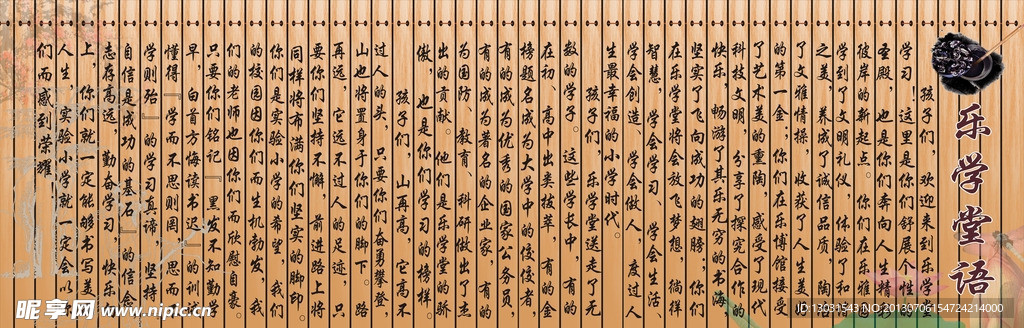 乐学堂语
孩子们，欢迎来到乐学堂
学习！这里是你们舒展个性的
圣殿，也是你们奔向人生精彩
彼岸的新起点。你们在乐雅
学到了文明礼仪，体验了和谐
之美，养成了诚信品质，陶
了文雅情操，收获了人生美德
的第一金；你们在乐博馆接受
了艺术美的熏陶，感受了现代
科技文明，分享了探究合作的
快乐，畅游了其乐无穷的书海
坚实了飞向成功的翅膀，你们
在乐学堂将会放飞梦想，徜徉
智慧，学会学习、学会生活
学会创造、学会做人，度过人
生最幸福的小学时代。
孩子们，乐学堂送走了无
数的学子。这些学长中，有的
在初、高中出类拔萃，有的金
榜题名成为大学中的佼佼者
有的成为优秀的国家公务员，
有的成为著名的企业家，有的
为国防、教育、科研做出了杰
出的贡献。他们是乐学堂的骄
傲，也是你们学习的榜样。
孩子们，山再高，它高不
过人的头，只要你们奋勇攀登，
山也将置身于你们的脚下。路
再远，它远不过人的足迹，只
要你们坚持不懈，前进路上将
同样将布满你们坚实的脚印。
你们是实验小学的希望，我们
的校园因你们而生机勃发，我
们的老师也因你们而欣慰自豪。
只要你们铭记『黑发不知勤学
早，白首方悔读书迟』的训诫
懂得『学而不思则罔，思而不
学则殆』的学习真谛，坚持
自信是成功的基石』的信念
志存高远，勤奋学习，快乐
上，你们就一定能够书写美
人生，实验小学就一定会以
们而感到荣耀.
昵享网 www.nipic.cn
ID:13031543 NO:20130706154724214000